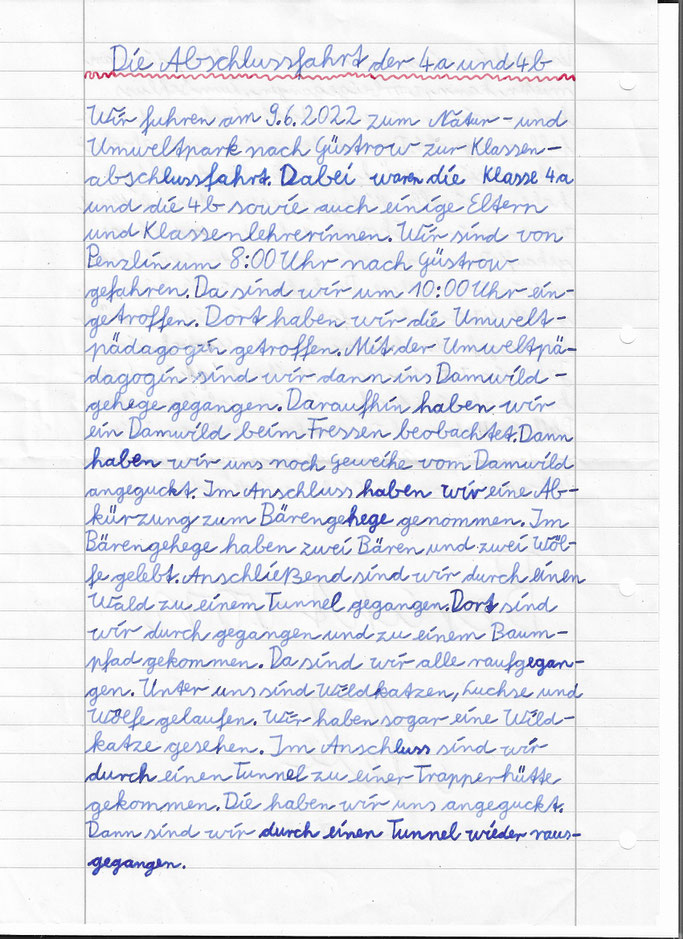 Die Abschlussfahrt der 4a und 4b
Wir fuhren am 9.6.2022 zum Natur- und
Umweltpark nach Güstrow zur Klassen-
abschlussfahrt. Dabei waren die Klasse 4a
und die 4b sowie auch einige Eltern
und Klassenlehrerinnen. Wir sind von
Penzlin um 8:00 Uhr nach Güstrow
gefahren. Da sind wir um 10:00 Uhr ein-
getroffen. Dort haben wir die Umwelt-
pädagogin getroffen. Mit der Umweltpä-
dagogin sind wir dann ins Damwild-
gehege gegangen. Daraufhin haben wir
ein Damwild beim Fressen beobachtet. Dann
haben wir uns noch Geweihe vom Damwild
angeguckt. Im Anschluss haben wir eine Ab-
kürzung zum Bärengehege genommen. Im
Bärengehege haben zwei Bären und zwei Wöl-
fe gelebt. Anschließend sind wir durch einen
Wald zu einem Tunnel gegangen. Dort sind
wir durch gegangen und zu einem Baum-
pfad gekommen. Da sind wir alle raufgegan-
gen. Unter uns sind Wildkatzen, Luchse und
Wölfe gelaufen. Wir haben sogar eine Wild-
katze gesehen. Im Anschluss sind wir
durch einen Tunnel zu einer Trapperhütte
gekommen. Die haben wir uns angeguckt.
Dann sind wir durch einen Tunnel wieder raus-
gegangen.